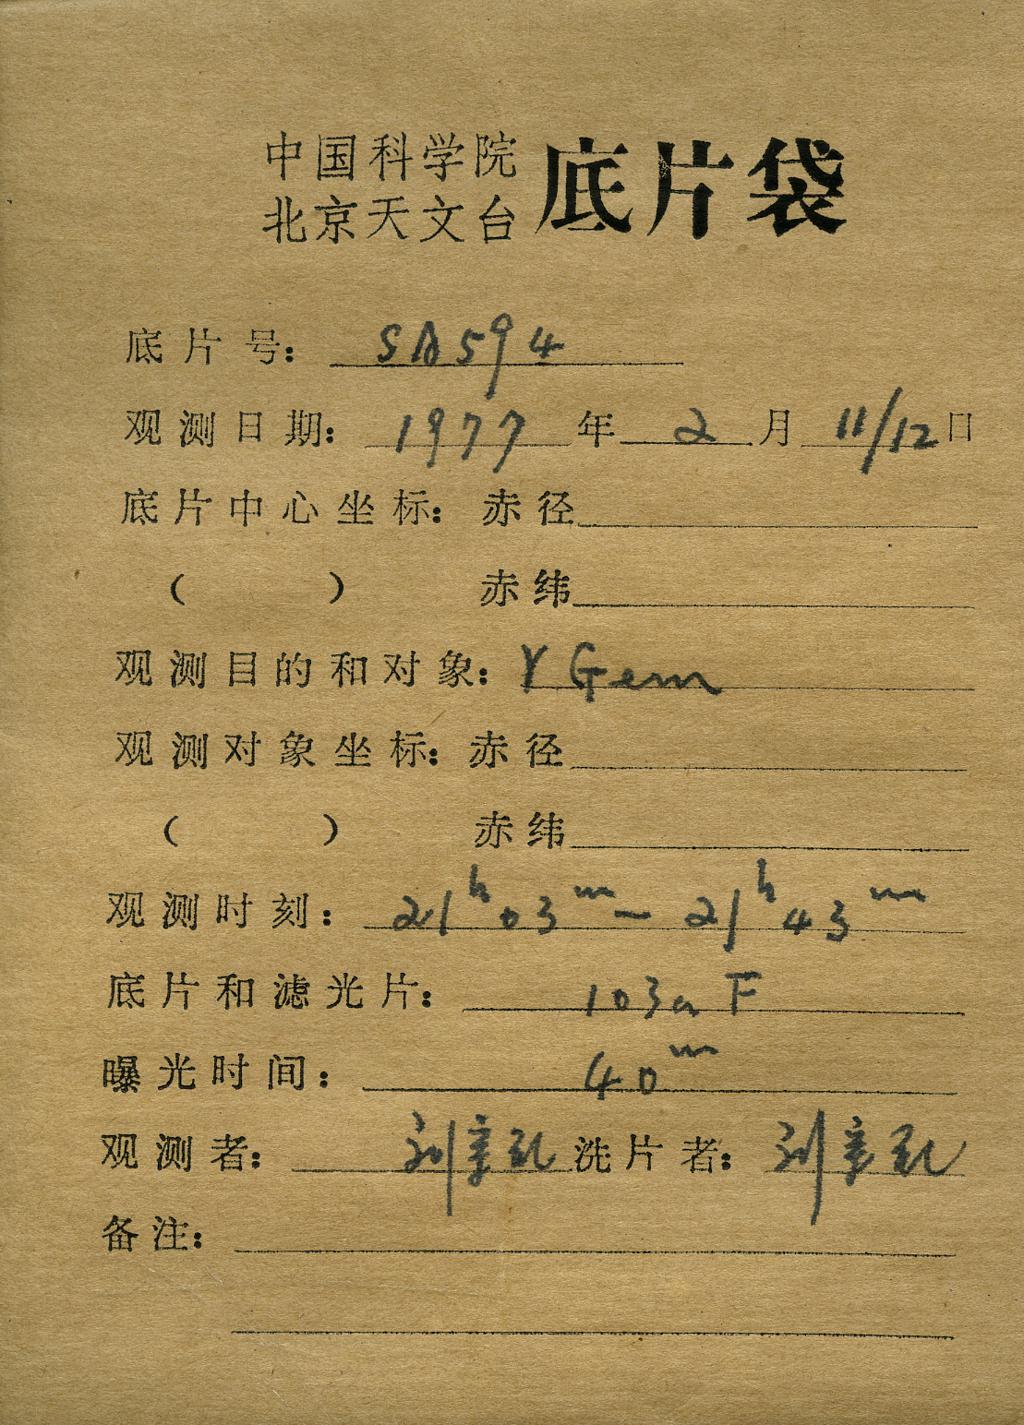 中国科学院
北京天文台
底片袋
底片号: SA594
观测日期: 1977 年 2 月 11/12 日
底片中心坐标: 赤径
( ) 赤纬
观测目的和对象: Y Gem
观测对象坐标: 赤径
( ) 赤纬
观测时刻: 21h03m - 21h43m
底片和滤光片: 103a F
曝光时间: 40m
观测者: 洗片者:
备注: